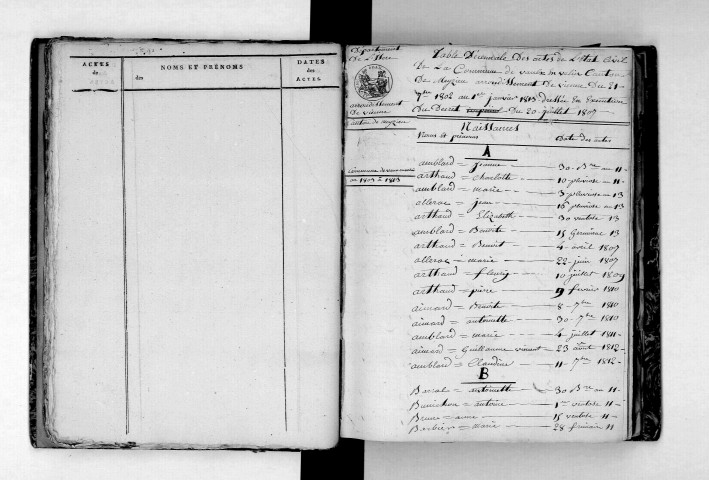 ACTES
de
NOMS ET PRÉNOMS
des
DATES
des
ACTES.
Département
De L'Isère
arrondissement
De vienne
canton de meyzieu
commune de
an 1802 = 1813
Table Décennale Des actes de L'état Civil
De La Commune de vaulx en velin Canton
De Meyzieu arrondissement de vienne Du 21
7bre 1802 au 1er janvier 1813 dressée En Exécution
Du Décret Du 20 juillet 1807
Naissances
Noms et prénoms Date des actes
A
amblard = jeanne 30 Bre an 11
arthaud = charlotte 10 pluviose 11
amblard = marie 3 pluviose 13
alleroc = jean 16 pluviose an 13
arthaud = Elizabeth 30 ventose 13
amblard = Benoite 15 Germinal 13
arthaud = Benoit 4 avril 1807
alleroc = marie 22 juin 1807
arthaud = fleury 10 juillet 1809
arthaud = pierre 9 fevrier 1810
aimard = Benoite 8 7bre 1810
aimard = antoinette 30 7bre 1810
amblard = marie 4 juillet 1811
aimard = Guillaume vincent 23 août 1812
amblard = Claudine 11 7bre 1812
B
Barral = antoinette 30 Bre an 11
= antoine 1er ventose 11
Brune = anne 15 ventose 11
Barbier = marie 28 frimaire 11